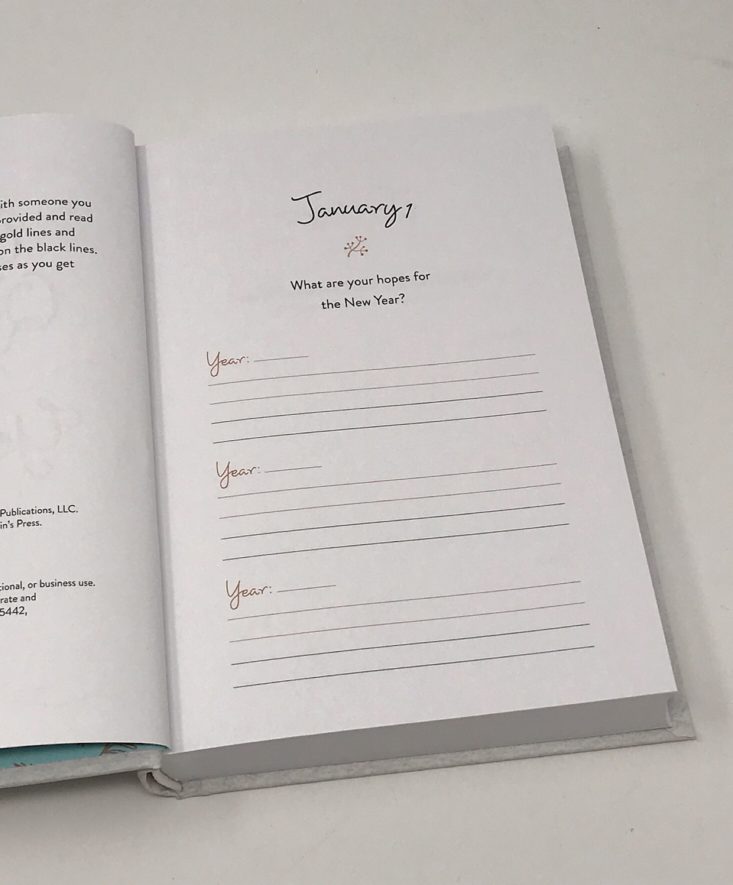 ith someone you
rovided and read
gold lines and
on the black lines.
ses as you get
Publications, LLC.
in's Press.
tional, or business use.
rate and
5442,
January 1
What are your hopes for
the New Year?
Year:
Year:
Year: